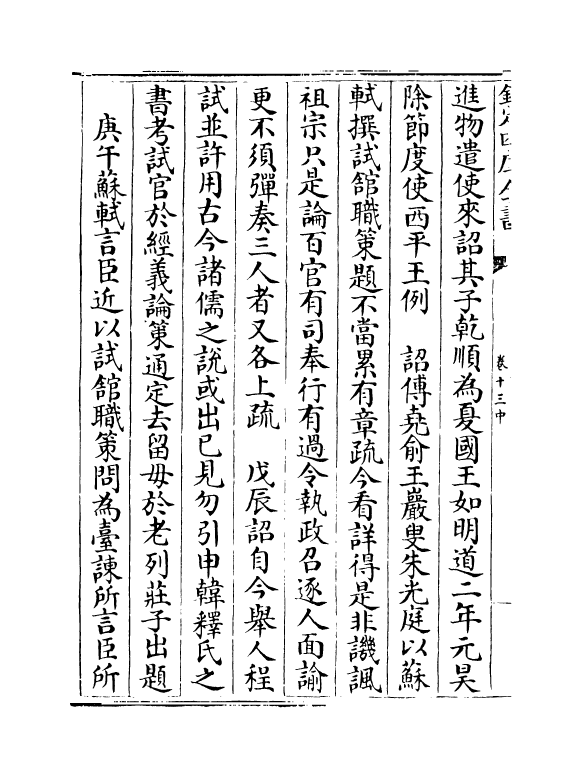 欽定四庫全書
卷十三中
進物遣使來詔其子乾順為夏國王如明道二年元昊
除節度使西平王例　詔傅堯俞王巖叟朱光庭以蘇
軾撰試舘職策題不當累有章疏今看詳得是非譏諷
祖宗只是論百官有司奉行有過令執政召逐人面諭
更不須彈奏三人者又各上疏　戊辰詔自今舉人程
試並許用古今諸儒之說或出已見勿引申韓釋氏之
書考試官於經義論策通定去留毋於老列莊子出題
庚午蘇軾言臣近以試舘職策問為臺諫所言臣所